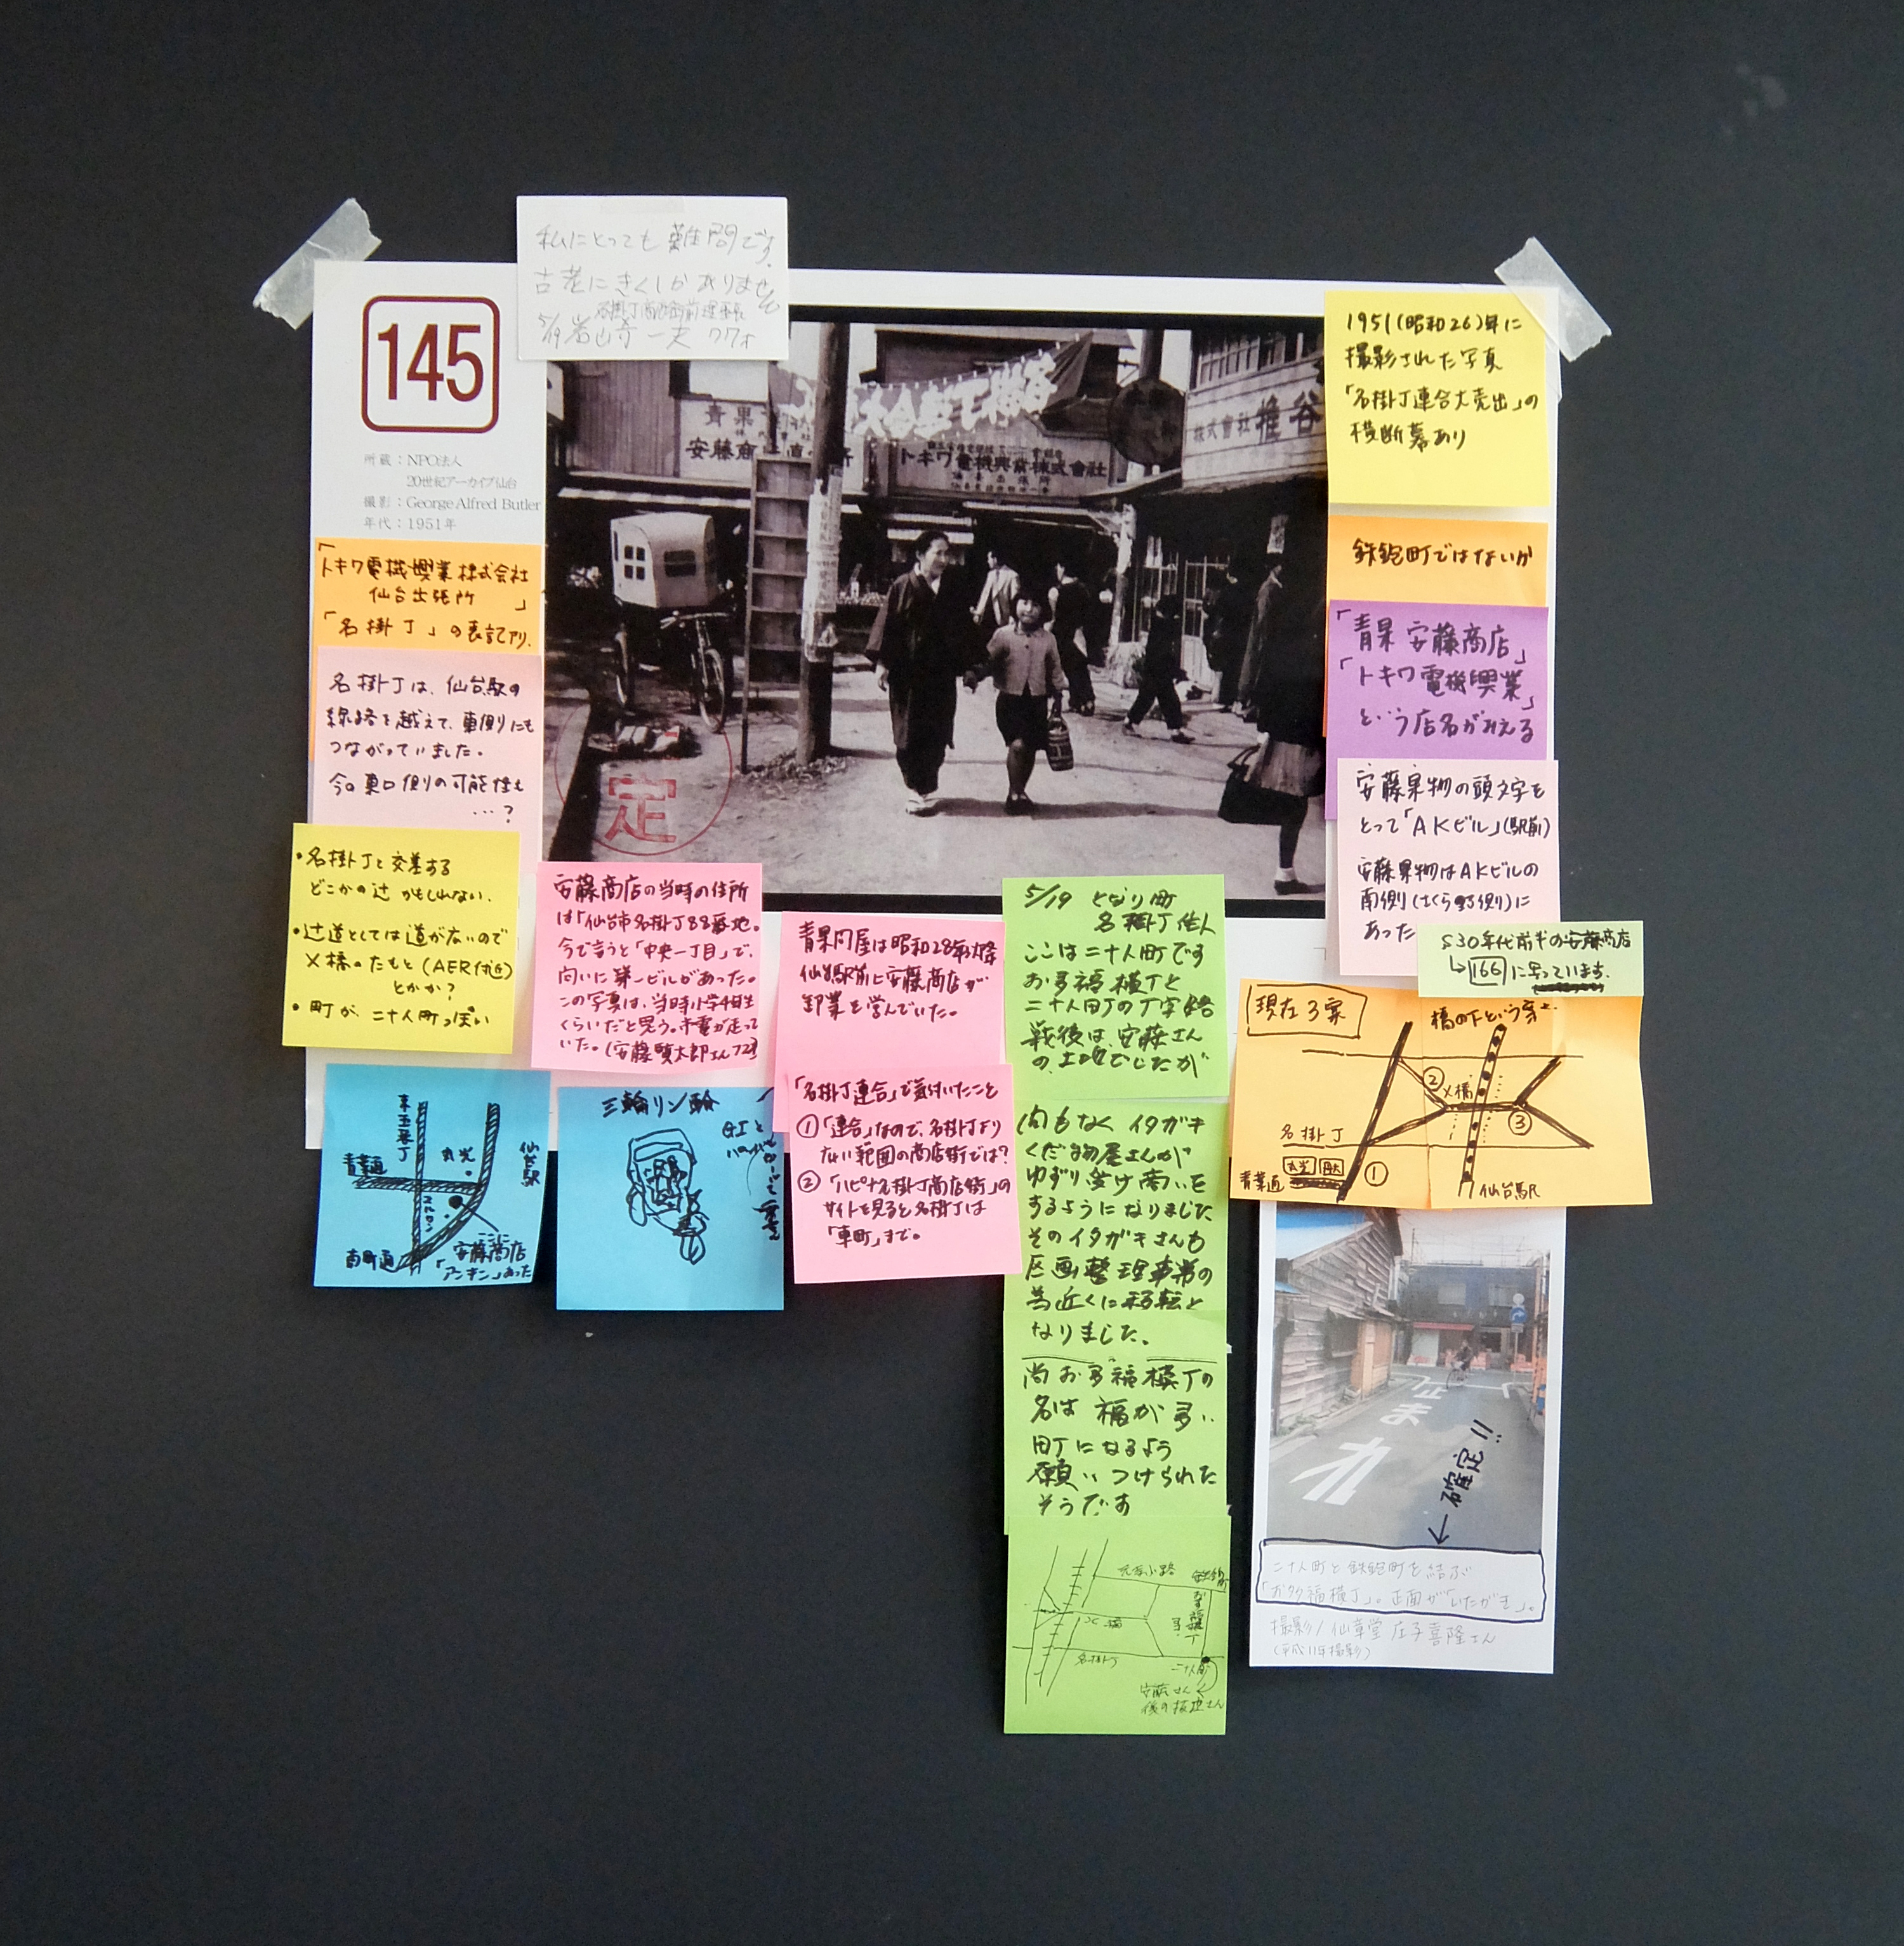 私にとっても難問です。
古老にきくしかありません
5/19 岩崎一夫 77才
145
所蔵：NPO法人
20世紀アーカイブ仙台
撮影：George Alfred Butler
年代：1951年
青果
安藤商
トキワ電機興業株式會社
株式會社 椎谷
定
1951(昭和26)年に
撮影された写真
「名掛丁連合大売出」の
横断幕あり
鉄砲町ではないか
「青果 安藤商店」
「トキワ電機興業」
という店名がみえる
安藤果物の頭文字を
とって「AKビル」(駅前)
安藤果物はAKビルの
南側(さくら野側)に
あった
S30年代前半の安藤商店
166に写っています.
「トキワ電機興業株式会社
仙台出張所」
「名掛丁」の表記アリ.
名掛丁は、仙台駅の
線路を越えて、東側にも
つながっていました。
今の東口側の可能性も
…?
・名掛丁と交差する
どこかの辻かもしれない.
・辻道としては道が広いので
X橋のたもと(AER付近)
とかか?
・町が、二十人町っぽい
安藤商店の当時の住所
は「仙台市名掛丁88番地。
今で言うと「中央一丁目」で、
向いに第一ビルがあった。
この写真は、当時小学4年生
くらいだと思う。市電が走って
いた。(安藤
青果問屋は昭和28年以降
仙台駅前に安藤商店が
卸業を営んでいた。
「名掛丁連合」で気付いたこと
①「連合」なので、名掛丁より
広い範囲の商店街では?
②「ハピナ名掛丁商店街」の
サイトを見ると名掛丁は
「車町」まで。
5/19 となり町
名掛丁住人
ここは二十人町です
お多福横丁と
二十人町の丁字路
戦後は、安藤さん
の土地でしたが
間もなくイタガキ
くだ物屋さんが
ゆずり受け商いを
するようになりました
そのイタガキさんも
区画整理事業の
為近くに移転と
なりました。
尚お多福横丁の
名は福が多い
町になるよう
願いつけられた
そうです
X橋
名掛丁
お多福横丁
二十人町
安藤さん
後の板垣さん
東五番丁
青葉通
丸光
仙台駅
南町通
ここに
安藤商店
「アンキン」あった
三輪リン輪
現在3案
橋の下という案も
② X橋
③
名掛丁
青葉通
丸光
①
仙台駅
止まれ
←確定!!
二十人町と鉄砲町を結ぶ
「お多福横丁」。正面が「いたがき」。
撮影/仙台堂 庄子喜隆さん
(平成11年撮影)